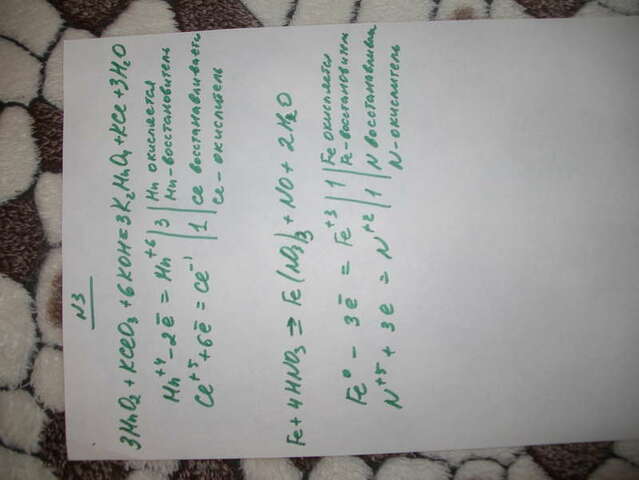 N3
3MnO₂ + KClO₃ + 6KOH = 3K₂MnO₄ + KCl + 3H₂O
Mn⁺⁴ - 2ē = Mn⁺⁶ | 3 | Mn окисляется
Mn - восстановитель
Cl⁺⁵ + 6ē = Cl⁻¹ | 1 | Cl восстанавливается
Cl - окислитель
Fe + 4HNO₃ → Fe(NO₃)₃ + NO + 2H₂O
Fe⁰ - 3ē = Fe⁺³ | 1 | Fe окисляется
Fe - восстановитель
N⁺⁵ + 3ē = N⁺² | 1 | N восстанавлив
N - окислитель